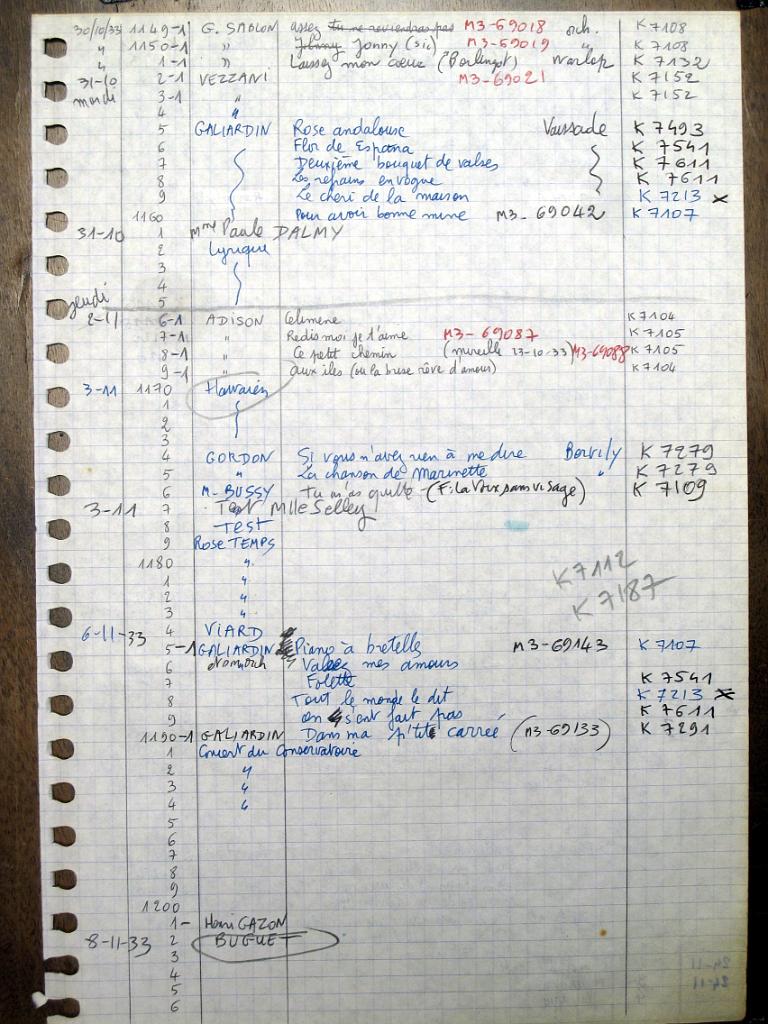 30/10/33 1149-1 G. SABLON assez tu ne reviendras pas M3-69018 orch. K 7108
" 1150-1 " Johnny Jonny (sic) M3-69019 " K 7108
" 1-1 " Laissez mon cœur (Berlingot) Warlop K 7132
31-10 2-1 VEZZANI M3-69021 K 7152
mardi 3-1 " K 7152
4 "
5 GALIARDIN Rose andalouse Vaissade K 7493
6 Flor de Espana K 7541
7 Deuxième bouquet de valses K 7611
8 Les refrains en vogue K 7611
9 Le chéri de la maison K 7213 x
1160 Pour avoir bonne mine M3-69042 K 7107
31-10 1 Mme Paule DALMY
2 Lyrique
3
4
5
jeudi
2-11 6-1 ADISON Celimene K 7104
7-1 " Redis moi je t'aime M3-69087 K 7105
8-1 " Ce petit chemin (mireille 23-10-33) M3-69088 K 7105
9-1 " Aux iles (ou la brise rêve d'amour) K 7104
3-11 1170 Hawaïen
1
2
3
4 GORDON Si vous n'avez rien à me dire K 7279
5 " La chanson de Marinette " K 7279
6 M. BUSSY Tu m'as quitté (F: La Voix sans visage) K 7109
3-11 7 Test Mlle Selley
8 Test
9 Rose TEMPS
1180 "
1 "
2 "
3 "
K 7112
K 7187
6-11-33 4 VIARD
5-1 GALIARDIN Piano à bretelles M3-69143 K 7107
6 Valsez mes amours
7 Folette K 7541
8 Tout le monde le dit K 7213 x
9 on s'ont fait pas K 7611
1190-1 GALIARDIN Dans ma p'tite carrée (M3-69133) K 7291
1 Concert du Conservatoire
2 "
3 "
4 "
5
6
7
8
9
1200
1- Henri GAZON
8-11-33 2 BUGUET
3
4
5
6